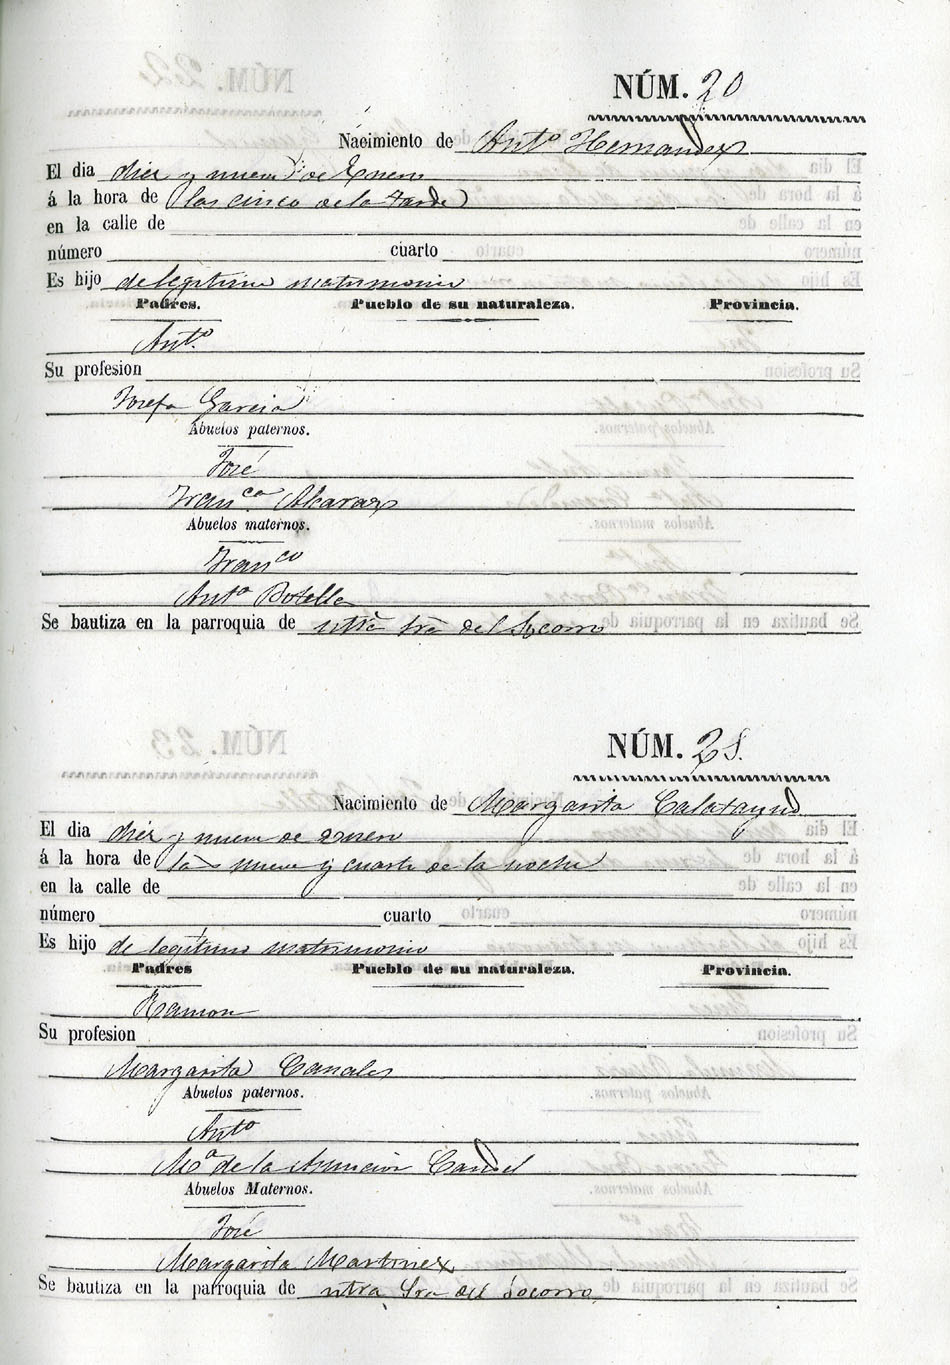 NÚM. 20
Nacimiento de Antº Hernandez
El dia diez y nueve de Enero
á la hora de las cinco de la tarde
en la calle de
número cuarto
Es hijo de legitimo matrimonio
Padres. Pueblo de su naturaleza. Provincia.
Antº
Su profesion
Josefa Garcia
Abuelos paternos.
José
Franca Alcaraz
Abuelos maternos.
Franco
Anta Botella
Se bautiza en la parroquia de ntra Sra del Socorro
NÚM. 21.
Nacimiento de Margarita Calatayud
El dia diez y nueve de Enero
á la hora de las nueve y cuarto de la noche
en la calle de
número cuarto
Es hijo de legitimo matrimonio
Padres Pueblo de su naturaleza. Provincia.
Ramon
Su profesion
Margarita Canales
Abuelos paternos.
Anto
Mª de la Asuncion Candel
Abuelos Maternos.
José
Margarita Martinez
Se bautiza en la parroquia de ntra Sra del Socorro